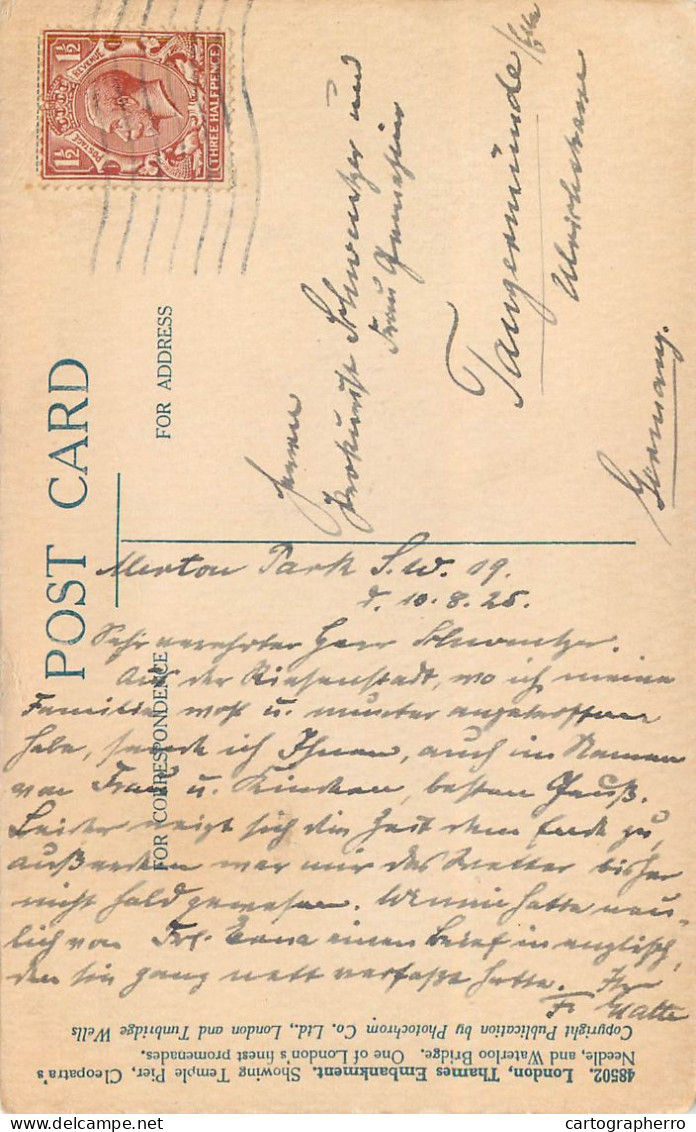 POST CARD
FOR ADDRESS
FOR CORRESPONDENCE
1½
POSTAGE
REVENUE
1½
THREE HALFPENCE
Herrn
Prokurist Schwentzer und
Frau Gemahlin
Tangermünde/Elbe
Ulrichstrasse
Germany.
Merton Park S.W. 19.
d. 10.8.25.
Sehr verehrter Herr Schwentzer.
Aus der Riesenstadt, wo ich meine
Familie wohl u. munter angetroffen
habe, sende ich Ihnen, auch im Namen
von Frau u. Kindern, besten Gruß.
Leider neigt sich die Zeit dem Ende zu,
außerdem war mir das Wetter bisher
nicht hold gewesen. Winnie hatte neu-
lich von Frl. Erna einen Brief in englisch,
den sie ganz nett verfaßt hatte. Ihr
F.
48502. London, Thames Embankment. Showing Temple Pier, Cleopatra's
Needle, and Waterloo Bridge. One of London's finest promenades.
Copyright Publication by Photochrom Co. Ltd., London and Tunbridge Wells
cartographerro